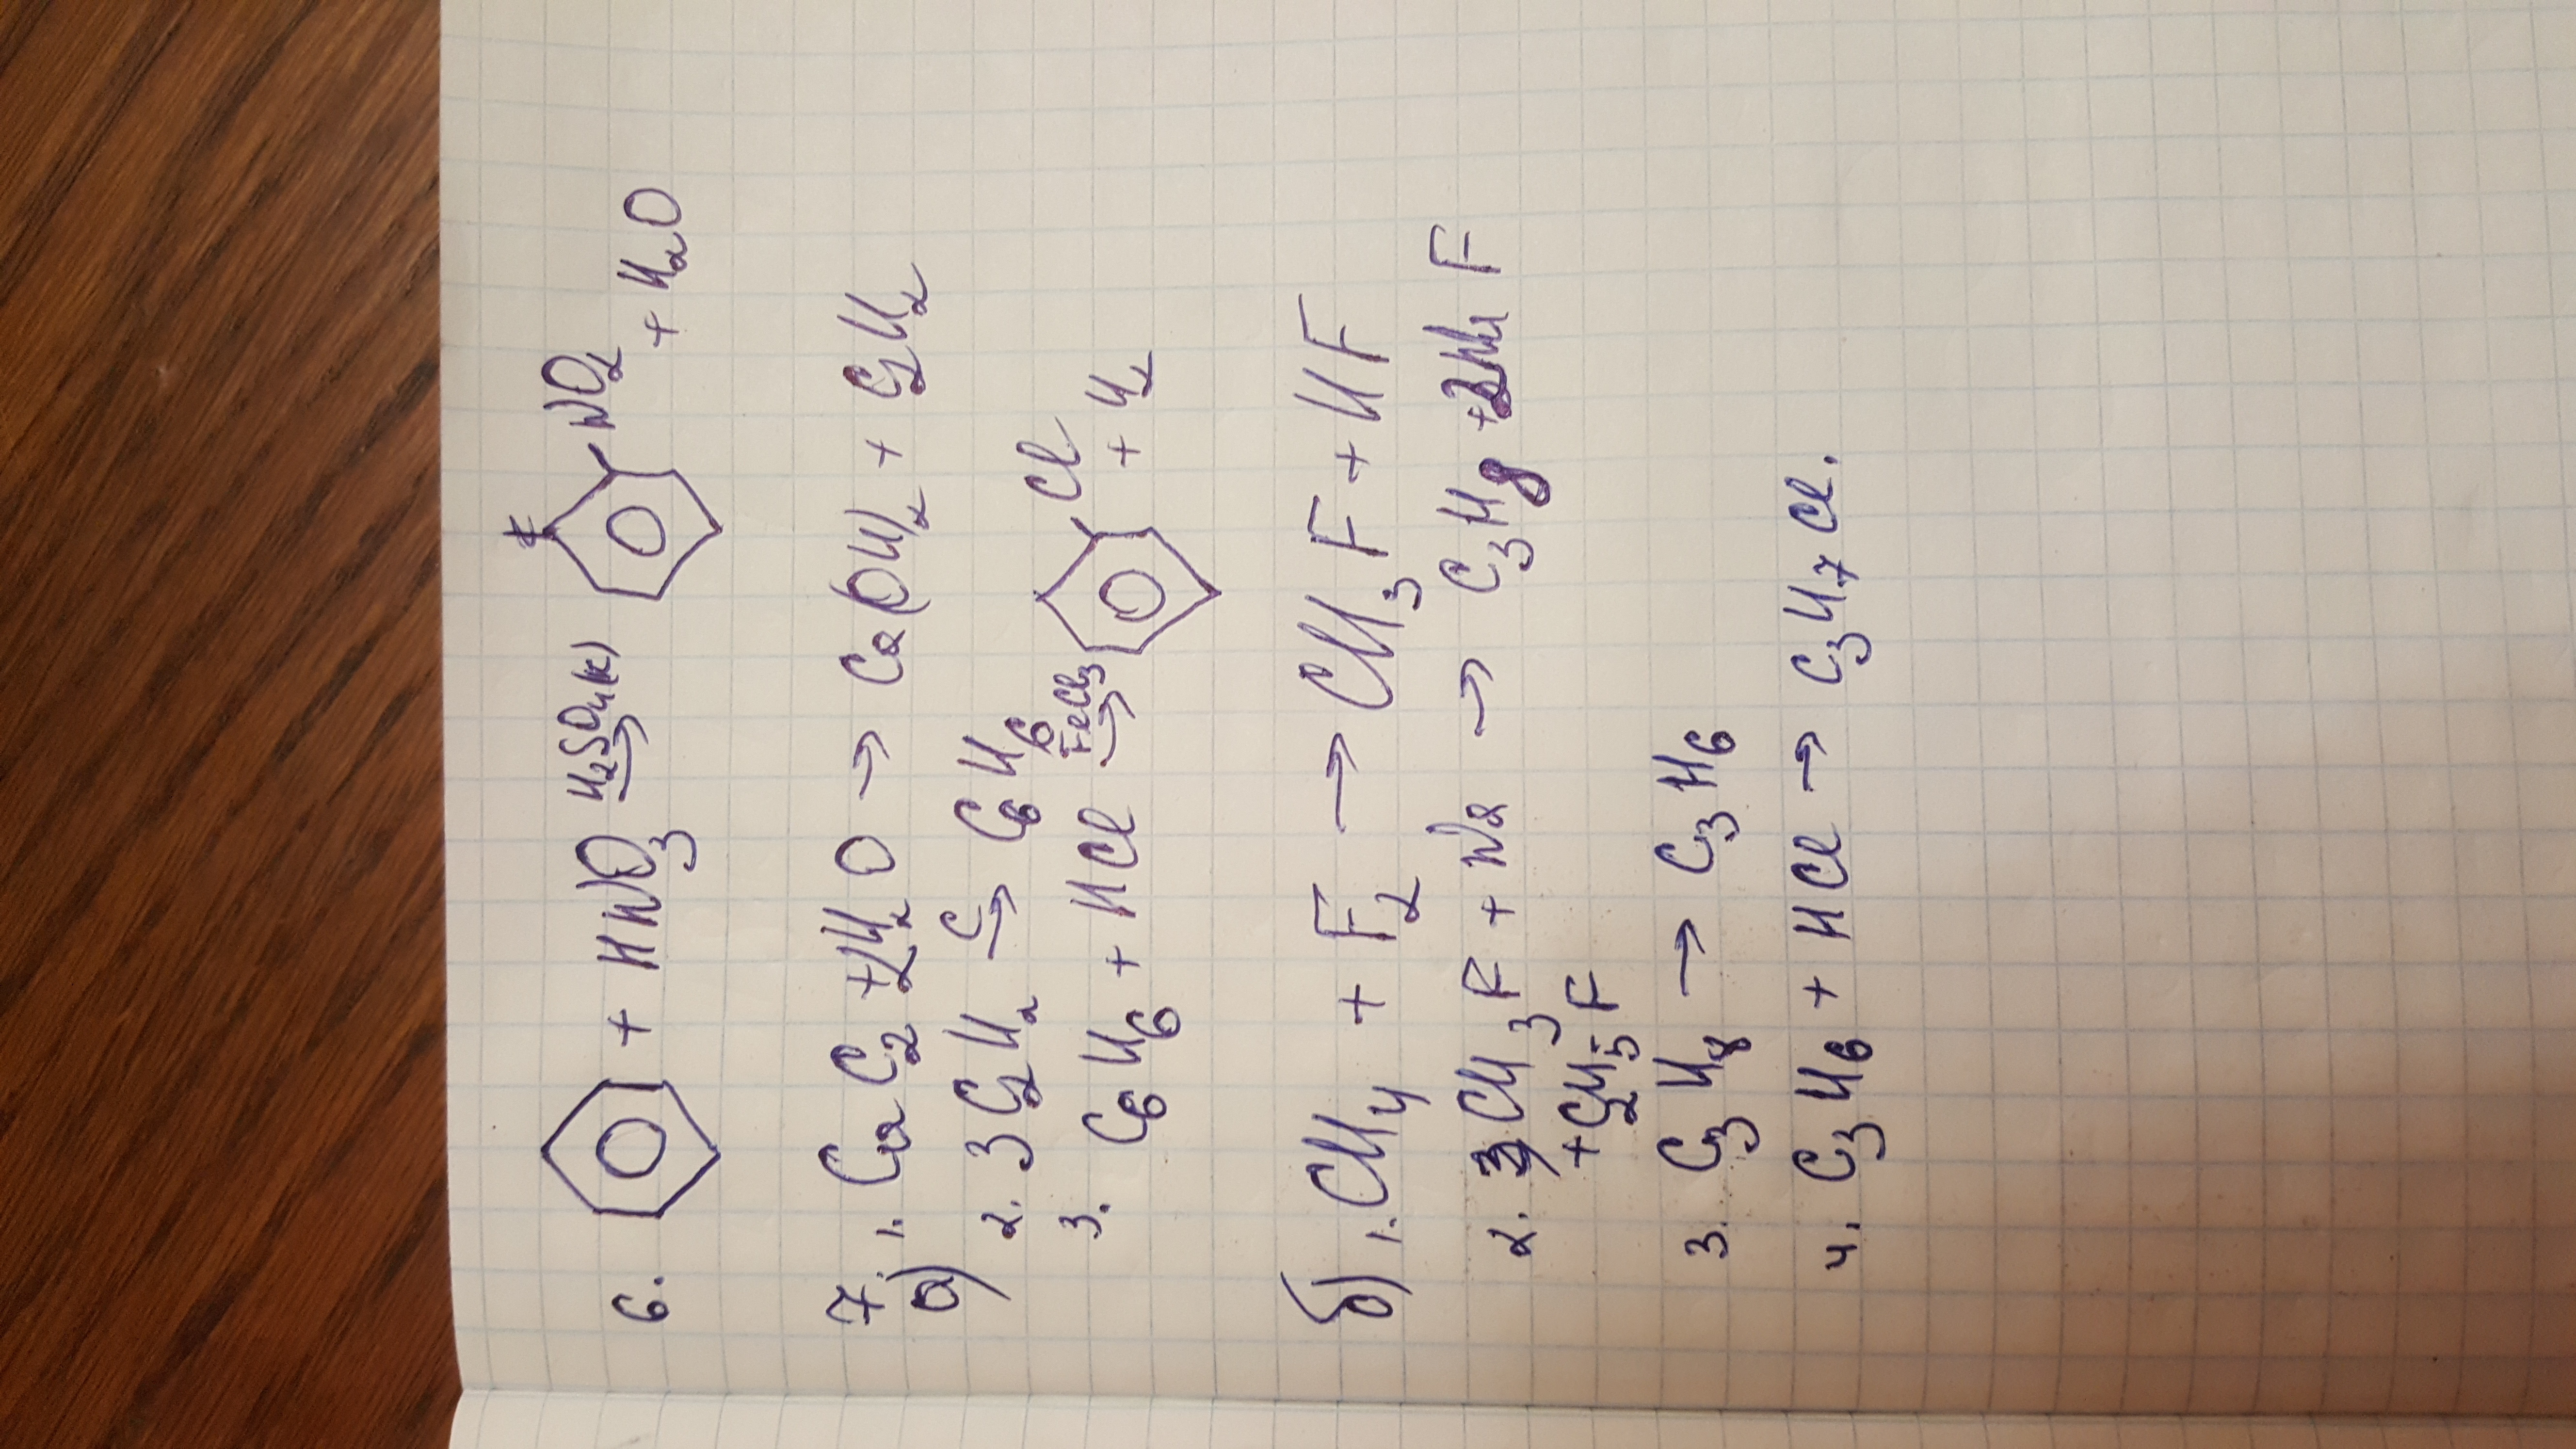 6. + HNO3 H2SO4(к) → NO2 + H2O
7.
а) 1. CaC2 + 2H2O → Ca(OH)2 + C2H2
2. 3C2H2 C → C6H6
3. C6H6 + HCl FeCl3 → Cl + H2
б) 1. CH4 + F2 → CH3F + HF
2. CH3F + Na → C3H8 + F
+ C2H5F
3. C3H8 → C3H6
4. C3H6 + HCl → C3H7Cl.